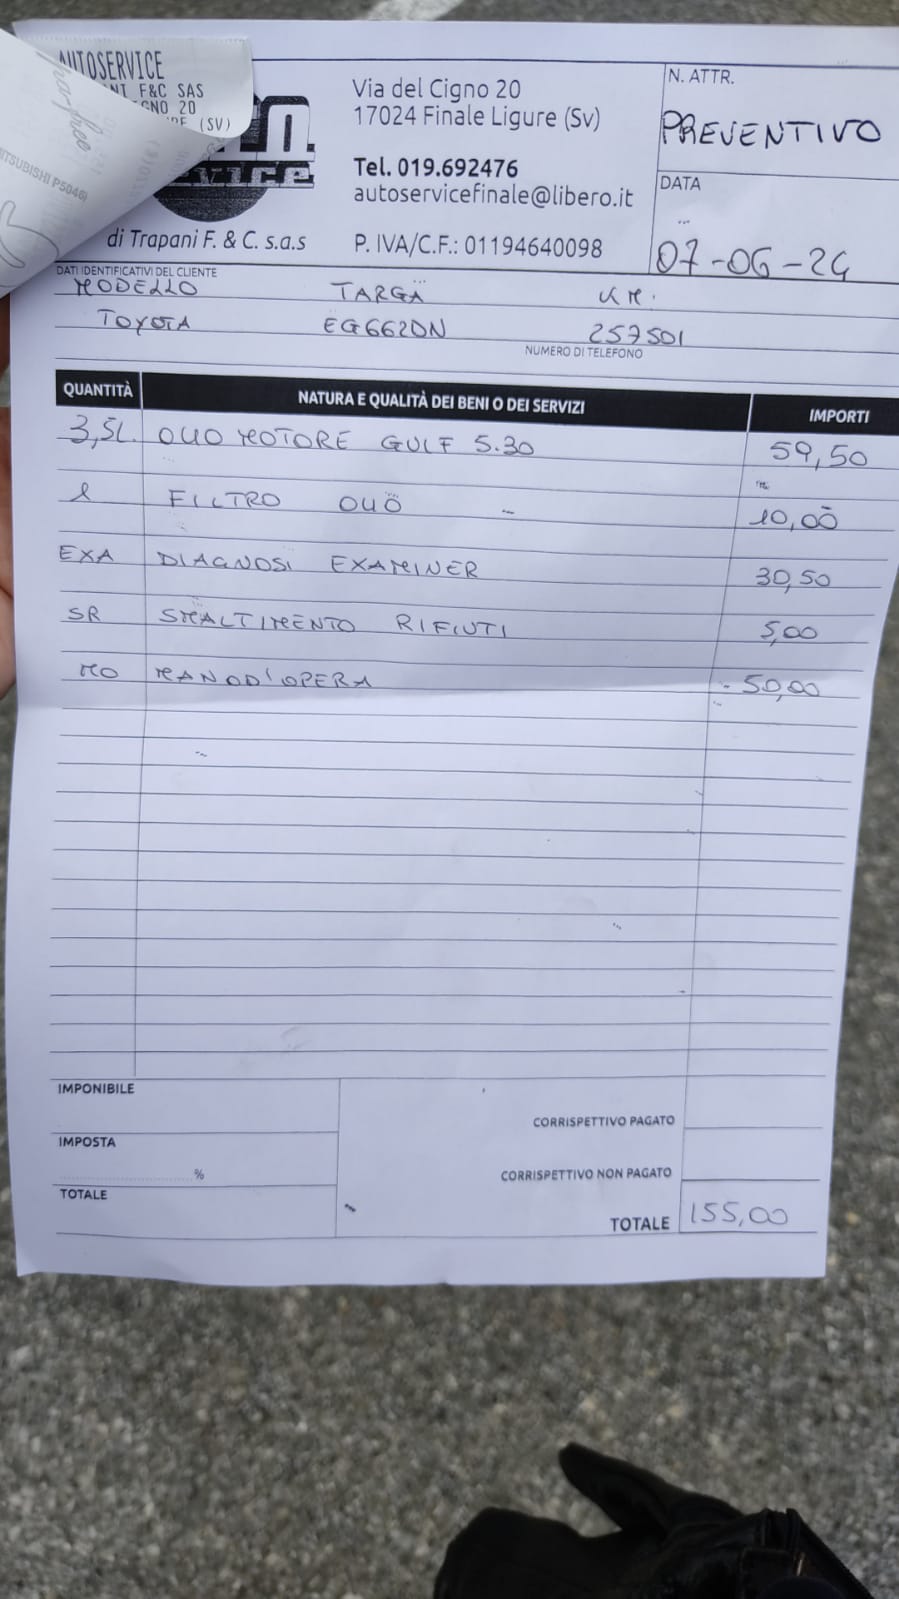 AUTOSERVICE
NI F&C SAS
GNO 20
RE (SV)
MITSUBISHI P5046)
vice
di Trapani F. & C. s.a.s
Via del Cigno 20
17024 Finale Ligure (Sv)
Tel. 019.692476
autoservicefinale@libero.it
P. IVA/C.F.: 01194640098
N. ATTR.
PREVENTIVO
DATA
07-06-24
DATI IDENTIFICATIVI DEL CLIENTE
MODELLO TARGA KM.
TOYOTA EG662DN 257501
NUMERO DI TELEFONO
QUANTITÀ NATURA E QUALITÀ DEI BENI O DEI SERVIZI IMPORTI
3,5L. OLIO MOTORE GULF 5.30 59,50
1 FILTRO OLIO 10,00
EXA DIAGNOSI EXAMINER 30,50
SR SMALTIMENTO RIFIUTI 5,00
MO MANOD'OPERA 50,00
IMPONIBILE
CORRISPETTIVO PAGATO
IMPOSTA
%
CORRISPETTIVO NON PAGATO
TOTALE
TOTALE 155,00